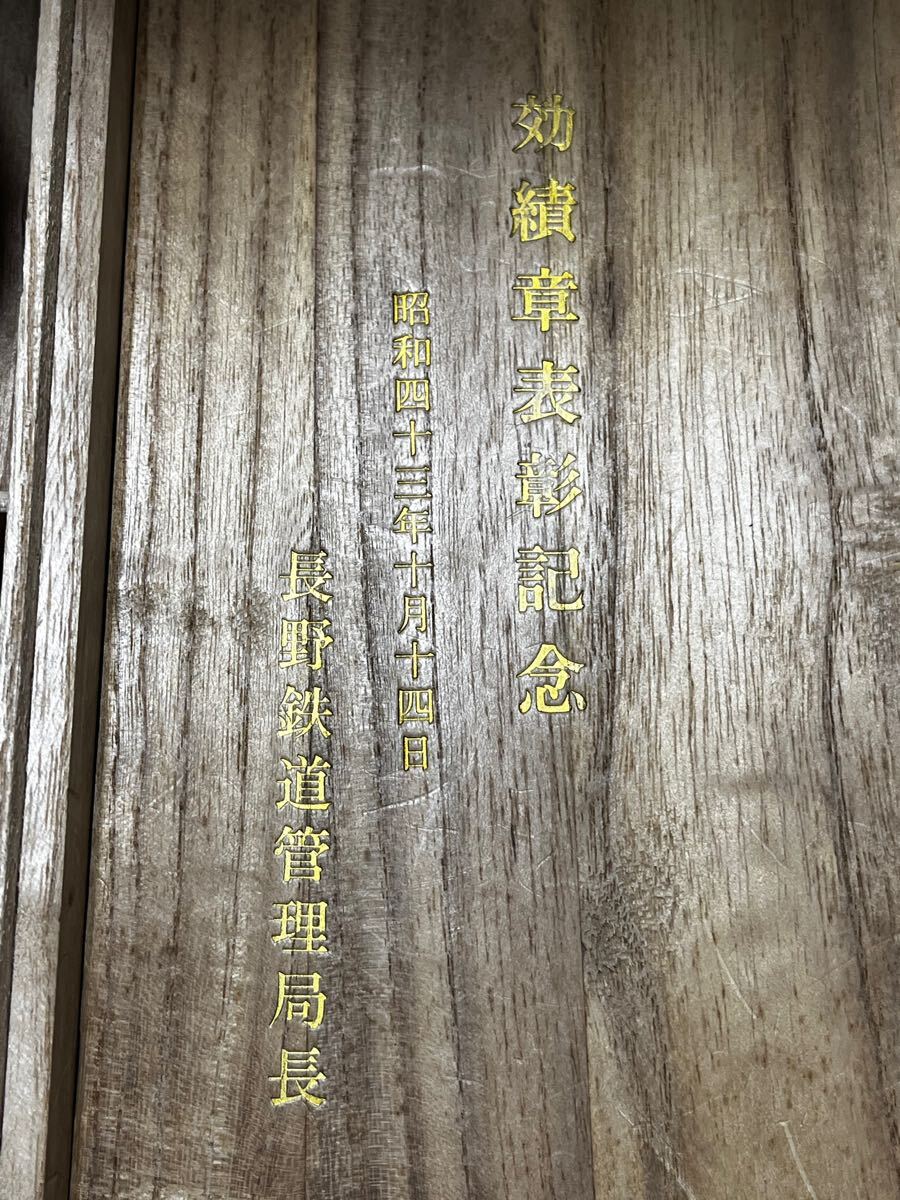 効績章表彰記念
昭和四十三年十月十四日
長野鉄道管理局長